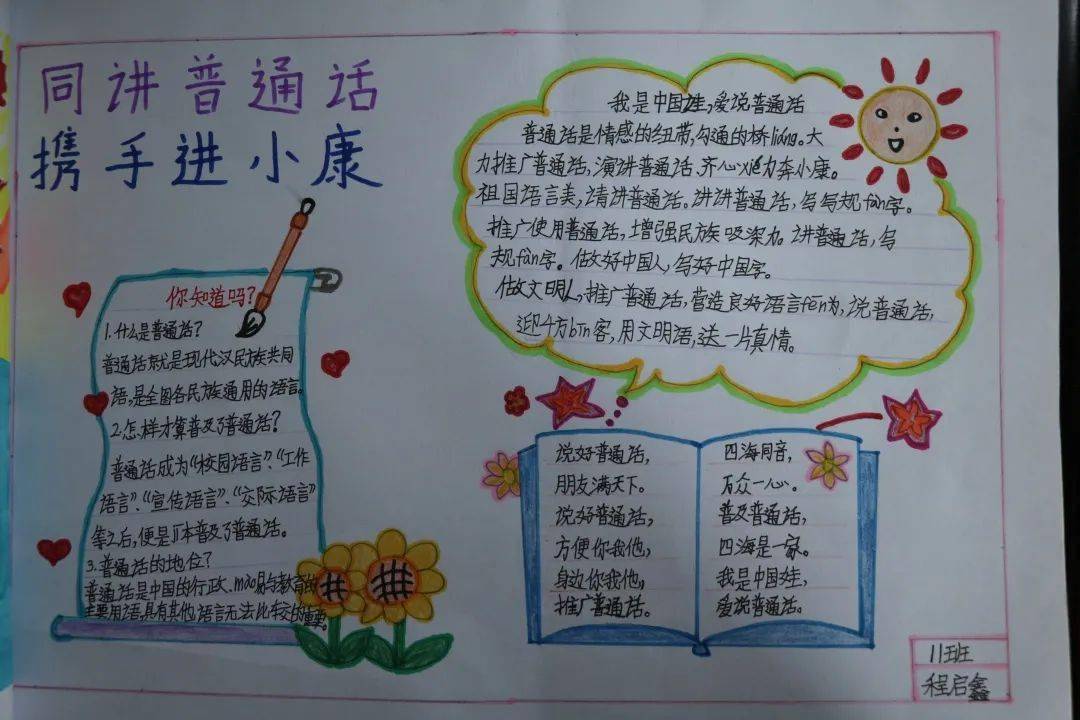 同讲普通话
携手进小康
你知道吗?
1.什么是普通话?
普通话就是现代汉民族共同
语,是全国各民族通用的语言。
2.怎样才算普及了普通话?
普通话成为“校园语言”、“工作
语言”、“宣传语言”、“交际语言”
等之后,便是基本普及了普通话。
3.普通话的地位?
普通话是中国的行政、mào易与教育的
主要用语,具有其他语言无法比较的重要。
我是中国娃,爱说普通话
普通话是情感的纽带,沟通的桥liáng。大
力推广普通话,演讲普通话,齐心xié力奔小康。
祖国语言美,请讲普通话。讲讲普通话,写写规fàn字。
推广使用普通话,增强民族吸深力。讲普通话,写
规fàn字。做好中国人,写好中国字。
做文明人,推广普通话,营造良好语言fēn为,说普通话,
迎四方bīn客,用文明语,达一片真情。
说好普通话,
朋友满天下。
说好普通话,
方便你我他,
身边你我他,
推广普通话。
四海同音,
万众一心。
普及普通话,
四海是一家。
我是中国娃,
爱说普通话。
11班
程启鑫